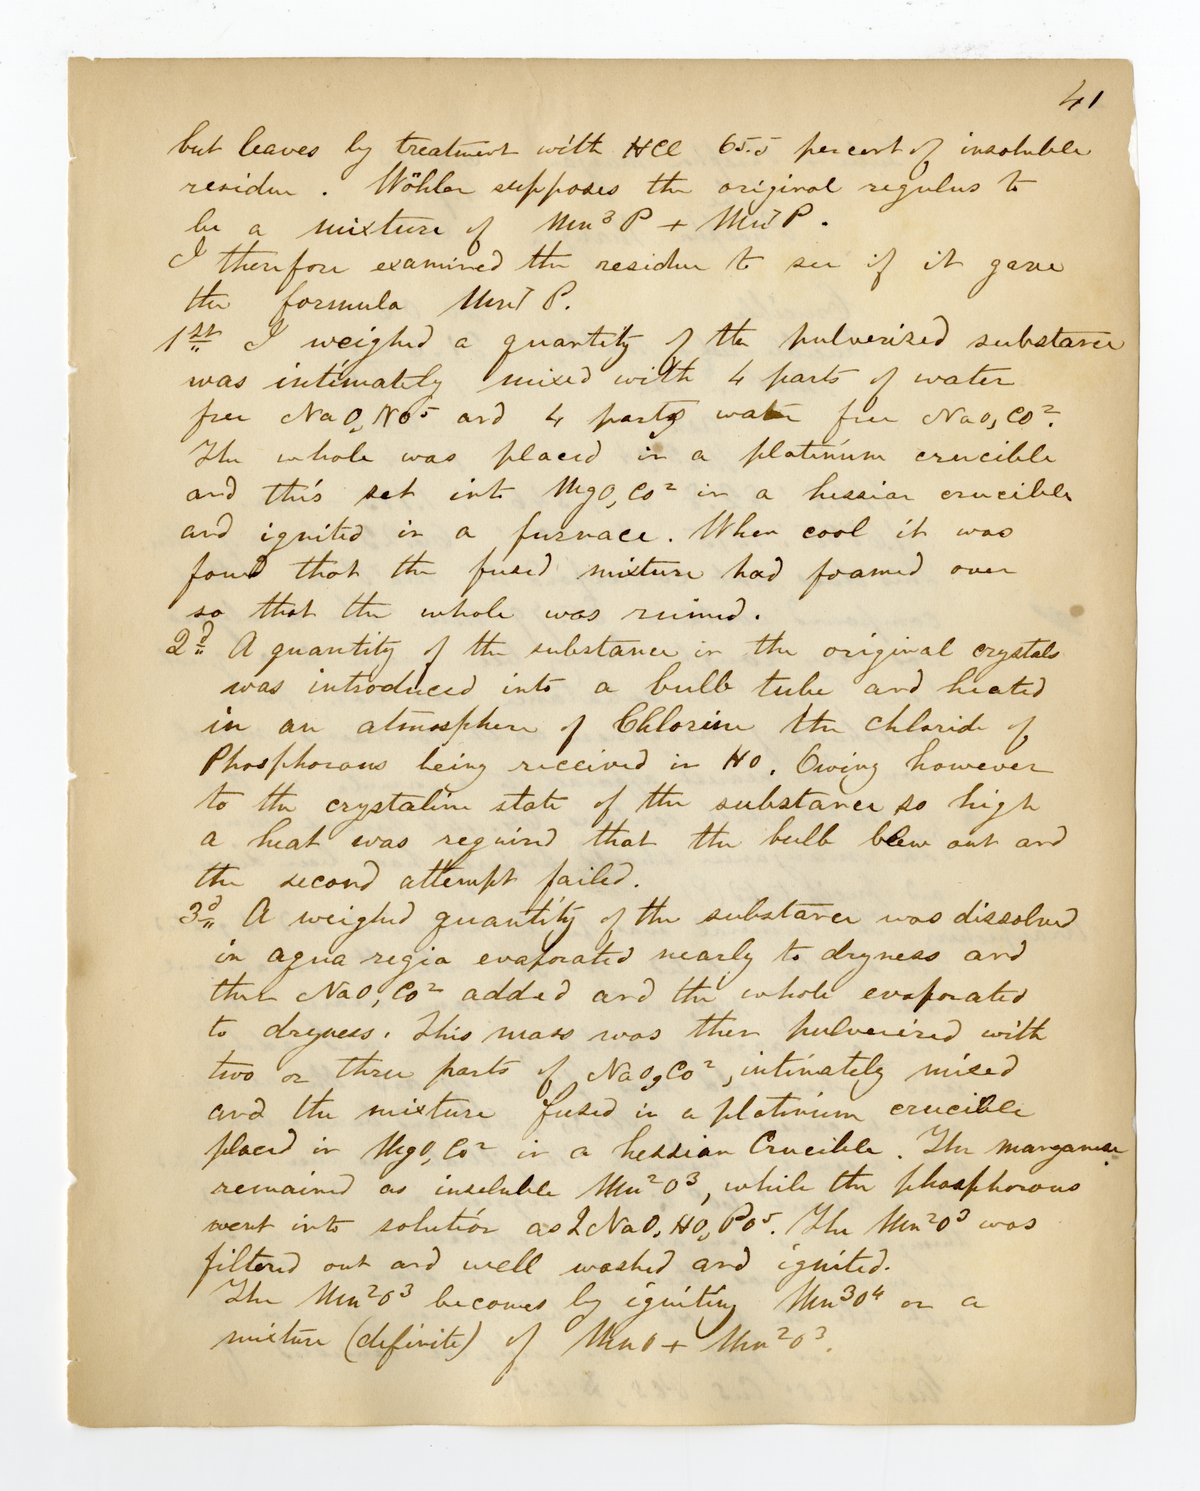 41
but leaves by treatment with HCl 65.5 per cent of insoluble
residue. Wöhler supposes the original regulus to
be a mixture of Mn³P + Mn⁷P.
I therefore examined the residue to see if it gave
the formula Mn⁷P.
1st I weighed a quantity of the pulverized substance
was intimately mixed with 4 parts of water
free NaO,NO⁵ and 4 parts water free NaO,CO².
The whole was placed in a platinum crucible
and this set into MgO,CO² in a hessian crucible
and ignited in a furnace. When cool it was
found that the fused mixture had foamed over
so that the whole was ruined.
2d A quantity of the substance in the original crystals
was introduced into a bulb tube and heated
in an atmosphere of Chlorine the chloride of
Phosphorous being received in HO. Owing however
to the crystaline state of the substance so high
a heat was required that the bulb blew out and
the second attempt failed.
3d A weighed quantity of the substance was dissolved
in aqua regia evaporated nearly to dryness and
then NaO,CO² added and the whole evaporated
to dryness. This mass was then pulverized with
two or three parts of NaO,CO², intimately mixed
and the mixture fused in a platinum crucible
placed in MgO,CO² in a hessian Crucible. The manganese
remained as insoluble Mn²O³, while the phosphorous
went into solution as 2NaO,HO,PO⁵. The Mn²O³ was
filtered out and well washed and ignited.
The Mn²O³ becomes by igniting Mn³O⁴ or a
mixture (definite) of MnO + Mn²O³.